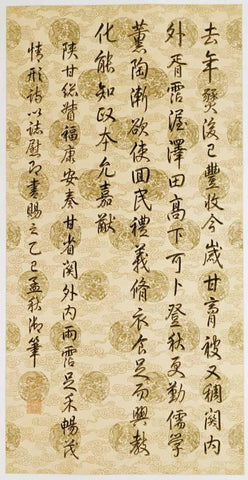 去年燹後已豐收今歲甘膏被又稠関内
外胥霑渥澤田高下可卜登秋更勤儒学
薰陶漸欲使回民禮義脩衣食足而興教
化能知政本允嘉猷
陝甘總督福康安奏甘省関外内雨霑足禾暢茂
情形詩以誌慰即書賜之乙巳孟秋御筆